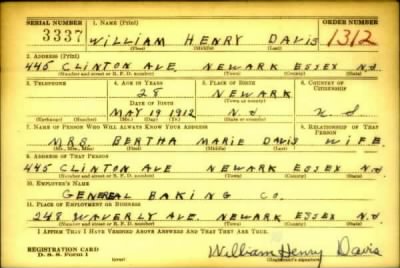 SERIAL NUMBER 1. NAME (Print) ORDER NUMBER
3337 WILLIAM HENRY DAVIS 1312
(First) (Middle) (Last)
2. ADDRESS (Print)
445 CLINTON AVE. NEWARK ESSEX N.J
(Number and street or R. F. D. number) (Town) (County) (State)
3. TELEPHONE 4. AGE IN YEARS 5. PLACE OF BIRTH 6. COUNTRY OF CITIZENSHIP
28 NEWARK
DATE OF BIRTH (Town or county)
MAY 19 1912 N.J
(Exchange) (Number) (Mo.) (Day) (Yr.) (State or country)
7. NAME OF PERSON WHO WILL ALWAYS KNOW YOUR ADDRESS 8. RELATIONSHIP OF THAT PERSON
MRS BERTHA MARIE DAVIS WIFE
(Mr., Mrs., Miss) (First) (Middle) (Last)
9. ADDRESS OF THAT PERSON
445 CLINTON AVE NEWARK ESSEX N.J
(Number and street or R. F. D. number) (Town) (County) (State)
10. EMPLOYER'S NAME
GENERAL BAKING CO.
11. PLACE OF EMPLOYMENT OR BUSINESS
248 WAVERLY AVE. NEWARK ESSEX N.J
(Number and street or R. F. D. number) (Town) (County) (State)
I AFFIRM THAT I HAVE VERIFIED ABOVE ANSWERS AND THAT THEY ARE TRUE.
REGISTRATION CARD
D. S. S. Form 1 (over) William Henry Davis
(Registrant's signature)